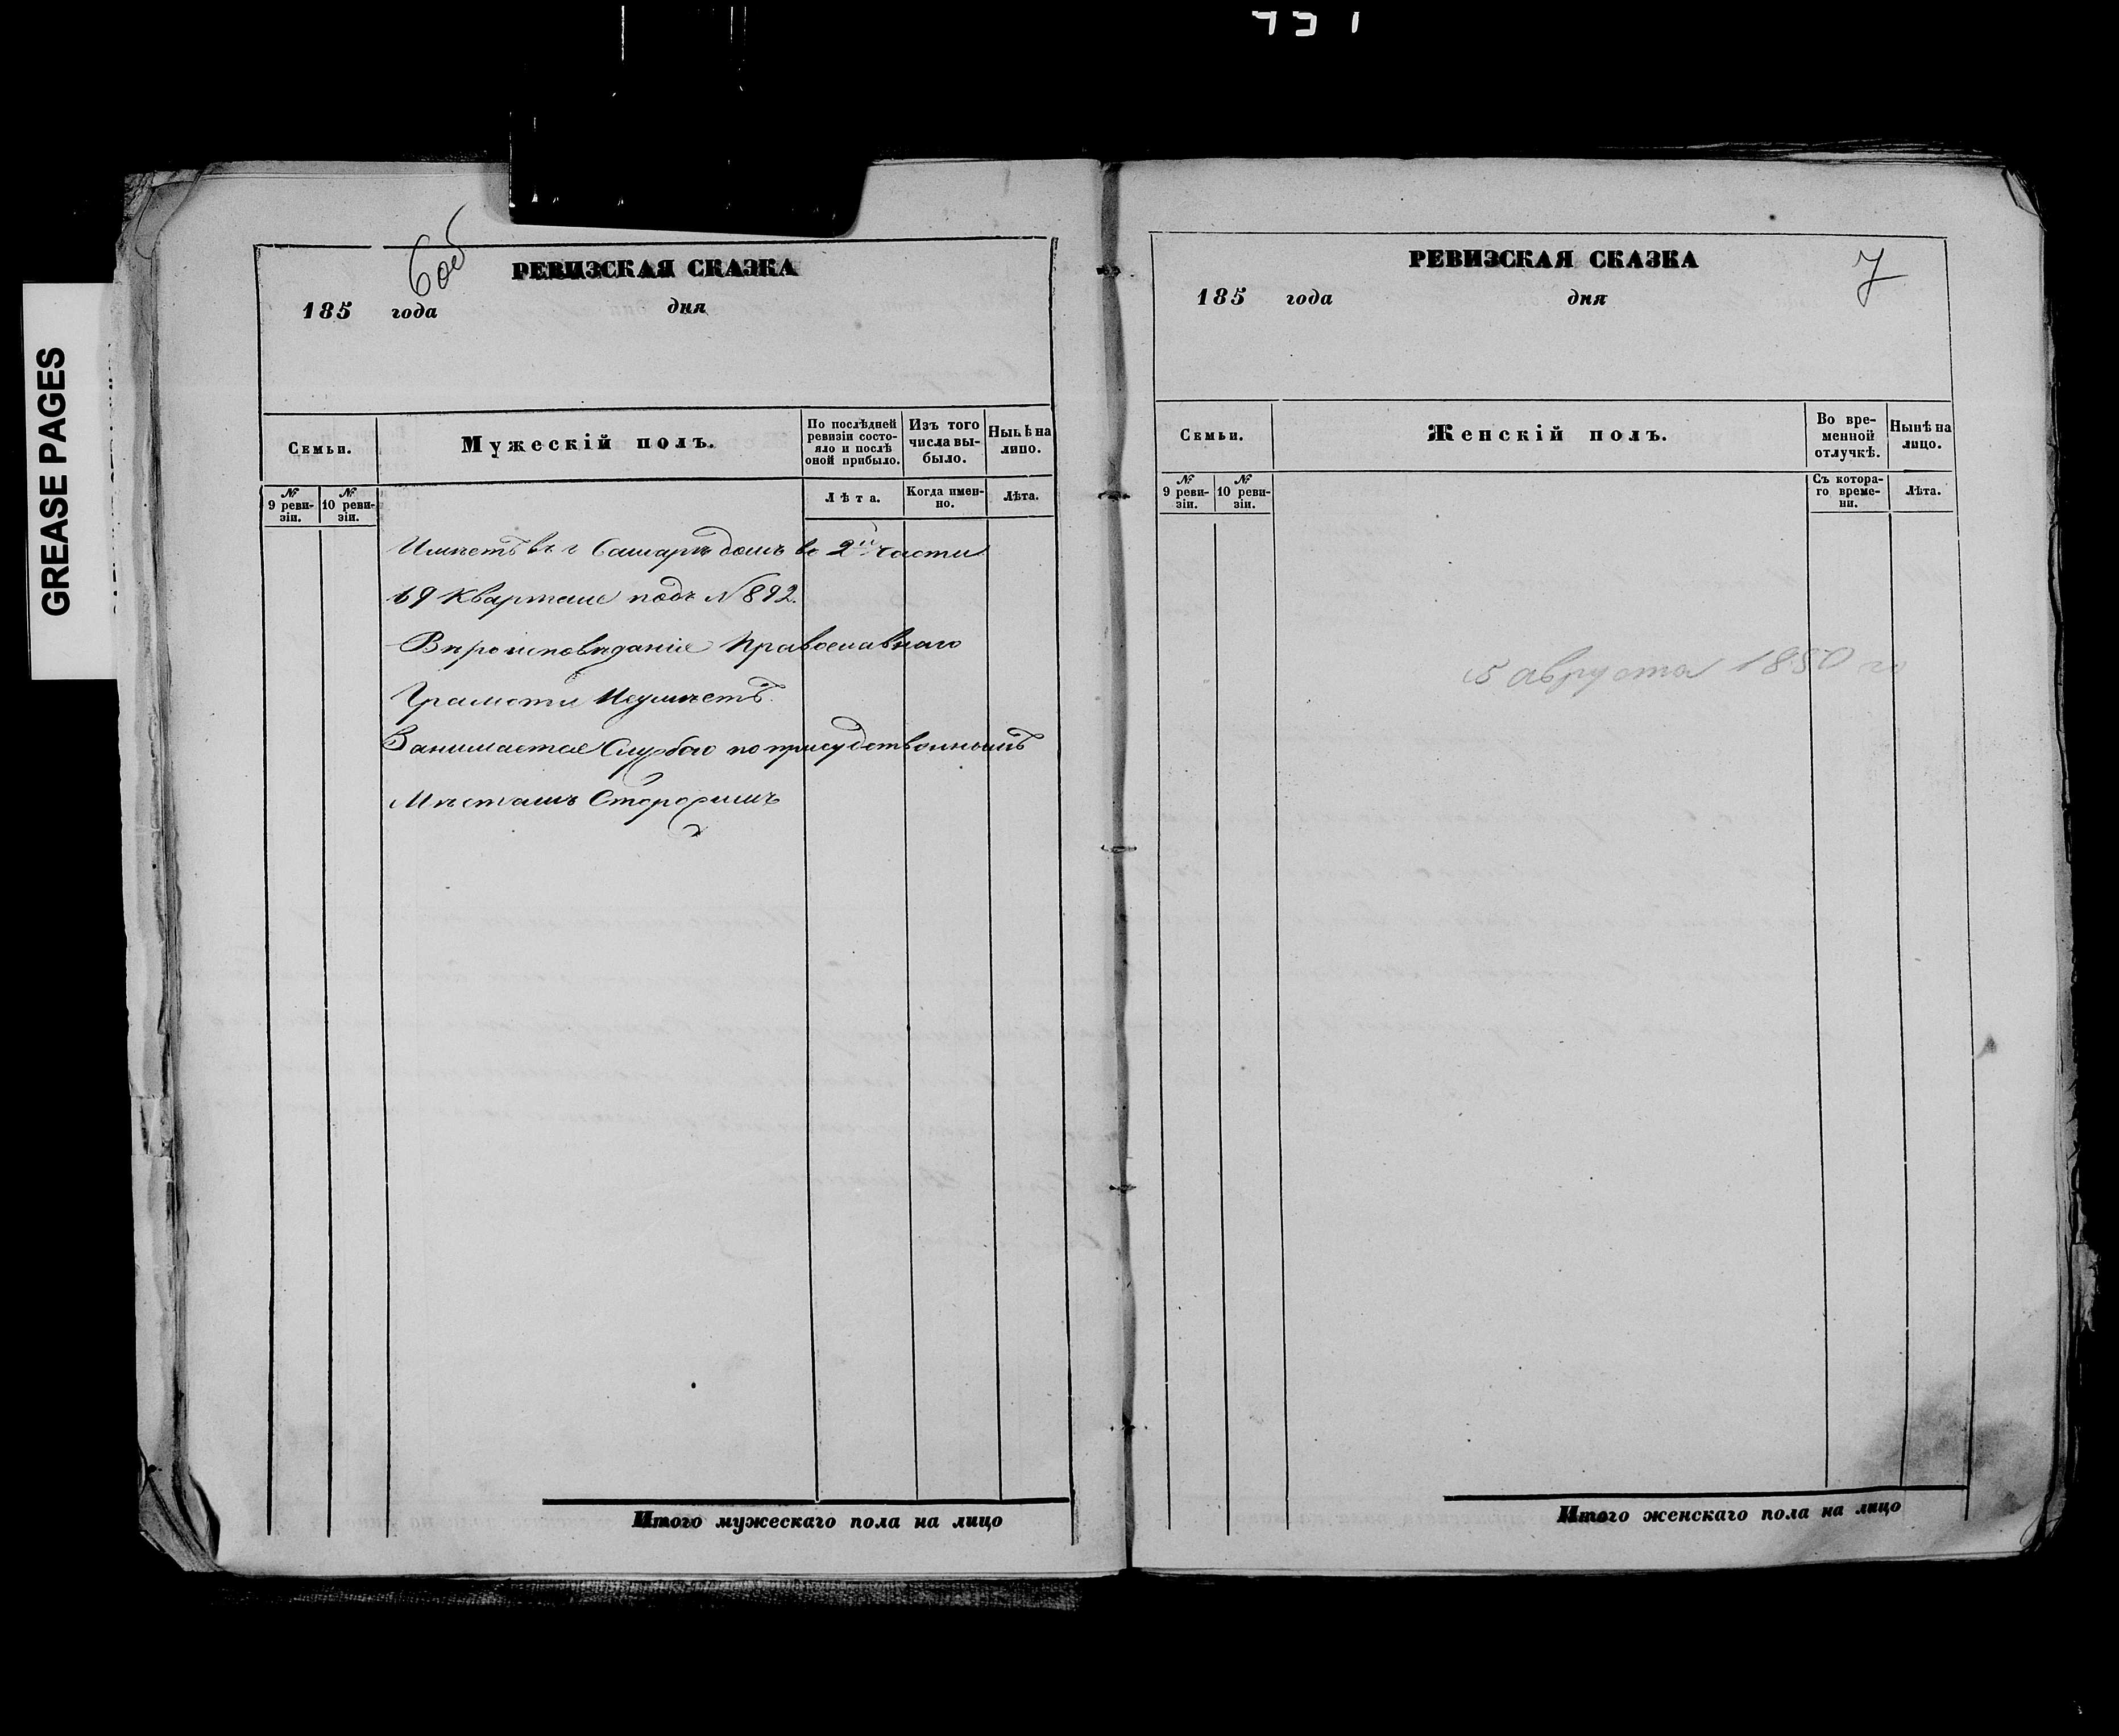 GREASE PAGES
6 об
РЕВИЗСКАЯ СКАЗКА
185 года дня
Семьи.
Мужескій полъ.
По послѣдней ревизіи состо-
яло и послѣ
оной прибыло.
Изъ того
числа вы-
было.
Нынѣ на
лицо.
№
9 реви-
зіи.
№
10 реви-
зіи.
Лѣта.
Когда имен-
но.
Лѣта.
Имѣетъ въ г Самарѣ домъ во 2й части
19 Квартале подъ N 892.
Вѣроисповѣданіе Православнаго
Грамоти Неумѣетъ
Занимается Службою по присудственнымъ
Мѣстамъ Сторожимъ
Итого мужескаго пола на лицо
РЕВИЗСКАЯ СКАЗКА
7
185 года дня
Семьи.
Женскій полъ.
Во вре-
менной
отлучкѣ.
Нынѣ на
лицо.
№
9 реви-
зіи.
№
10 реви-
зіи.
Съ котора-
го време-
ни.
Лѣта.
5 августа 1850 го
Итого женскаго пола на лицо